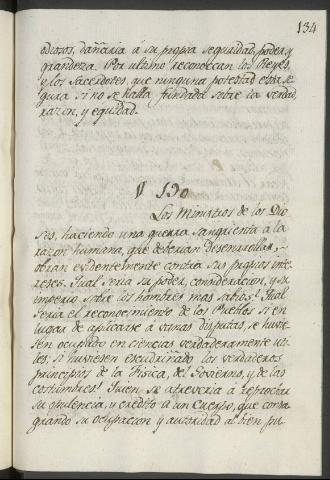 134
odiosos, dañaria á su propia seguridad, poder, y
grandeza. Por ultimo reconozcan los Reyes,
y los Sacerdotes, que ninguna potestad està se-
gura si no se halla fundada sobre la verdad
razon, y equidad.
§ 190
Los Ministros de los Dio-
ses, haciendo una guerra sangrienta á la
razon humana, que deberian desenrrollar,
obran evidentemente contra sus propios inte-
reses. Qual seria su poder, consideracion, y su
imperio sobre los hombres mas sabios! Qual
seria el reconocimiento de los Pueblos si en
lugar de aplicarse à vanas disputas, se huvie-
sen ocupado en ciencias verdaderamente uti-
les; si huviesen escudriñado los verdaderos
principios de la Fisica, del Govierno, y de las
costumbres! Quien se atreveria à reprochar
su opulencia, y credito à un Cuerpo, que consa-
grando su ocupacion y autoridad al bien pu-